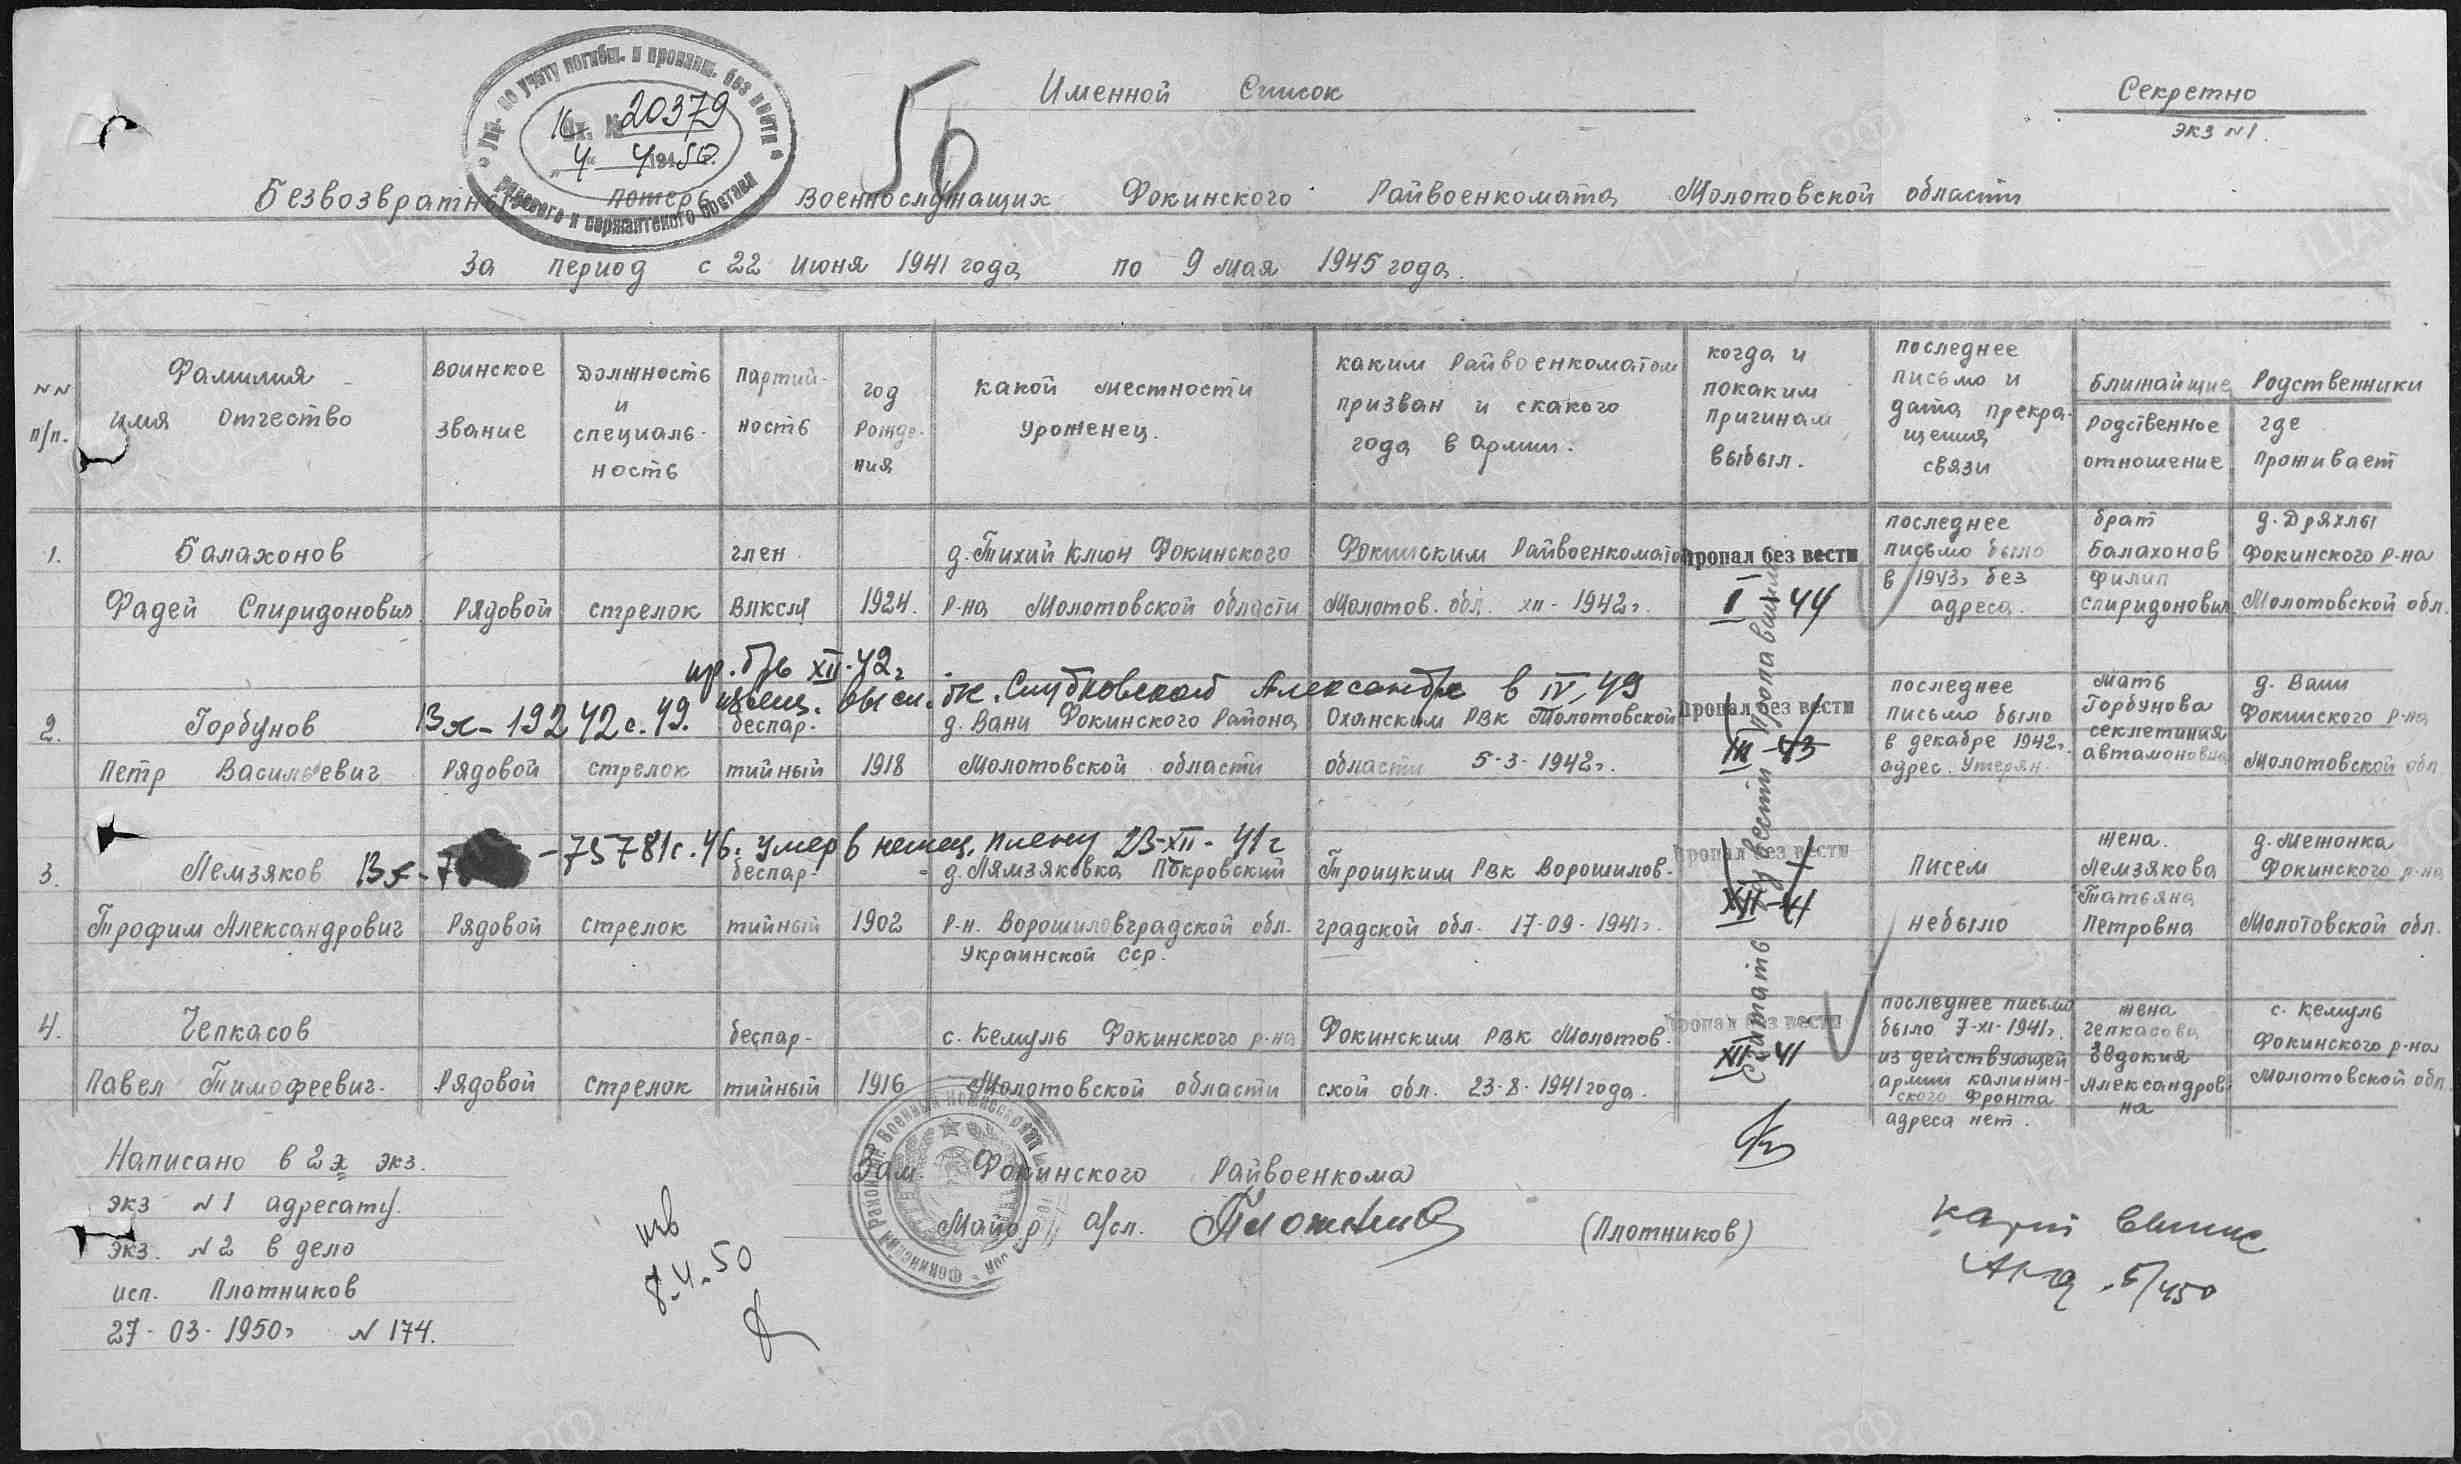 Упр. по учету погибш. и пропавш. без вести
Вх. № 20379
"4" 4 1950.
рядового и сержантского состава
50
Именной Список
Секретно
экз №1.
Безвозвратных потерь военнослужащих Фокинского Райвоенкомата Молотовской области
За период с 22 июня 1941 года по 9 мая 1945 года.
№№ п/п.
Фамилия имя отчество
воинское звание
Должность и специальность
партийность
год рождения
какой местности уроженец.
каким Райвоенкоматом призван и скакого года в армии.
когда и покаким причинам выбыл.
последнее письмо и дата прекращения связи
Ближайщие Родственники
Родственное отношение
где проживает
1.
Балахонов
Фадей Спиридонович
Рядовой
стрелок
член
ВЛКСМ
1924.
д. Тихий Ключ Фокинского
р-на Молотовской области
Фокинским Райвоенкоматом
Молотов. обл. XII - 1942г.
Пропал без вести
I - 44
последнее
письмо было
в 1943г без
адреса.
брат
Балахонов
Филип
Спиридонович
д. Дряхлы
Фокинского р-на
Молотовской обл.
пр. б/в XII-42г
извещ. высл. Александре в IV. 49
2.
Горбунов
Вх-19242с.49.
Петр Васильевич
Рядовой
стрелок
беспар-
тийный
1918
д. Вани Фокинского Района
Молотовской области
Оханским РВК Молотовской
области 5-3-1942г.
Пропал без вести
III - 43
последнее
письмо было
в декабре 1942г.
адрес. утерян.
мать
Горбунова
секлетиния
автамоновна
д. Вани
Фокинского р-на
Молотовской обл.
3.
Лемзяков
-75781с.46. умер в немец. плену 23-XII-41г
Трофим Александрович
Рядовой
стрелок
беспар-
тийный
1902
д. Лямзяковка Покровский
р-н. Ворошиловградской обл.
Украинской ССР.
Троицким РВК Ворошилов-
градской обл. 17-09-1941г.
Пропал без вести
XII-41
писем
небыло
жена.
Лемзякова
Татьяна
Петровна
д. Метонка
Фокинского р-на
Молотовской обл.
4.
Чепкасов
Павел Тимофеевич.
Рядовой
стрелок
беспар-
тийный
1916
с. Кемуль Фокинского р-на
Молотовской области
Фокинским РВК Молотов.
ской обл. 23-8-1941 года.
Пропал без вести
XII-41
последнее письмо
было 7-XI-1941г.
из действующей
армии калинин-
ского Фронта
адреса нет.
жена
Чепкасова
Евдокия
Александров
на
с. Кемуль
Фокинского р-на
Молотовской обл.
Считать без вести пропавшими
Написано в 2х экз.
экз №1 адресату.
экз. №2 в дело
исп. Плотников
27-03-1950г №174.
8.4.50
Зам. Фокинского Райвоенкома
Майор а/сл. (Плотников)